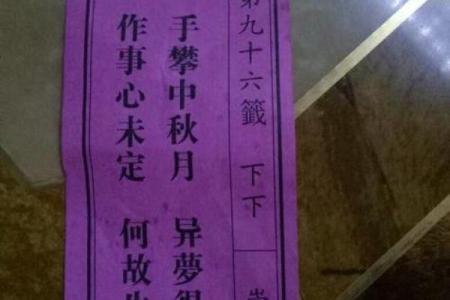 第九十六籤 下下
手攀中秋月 异夢得
作事心未定 何故